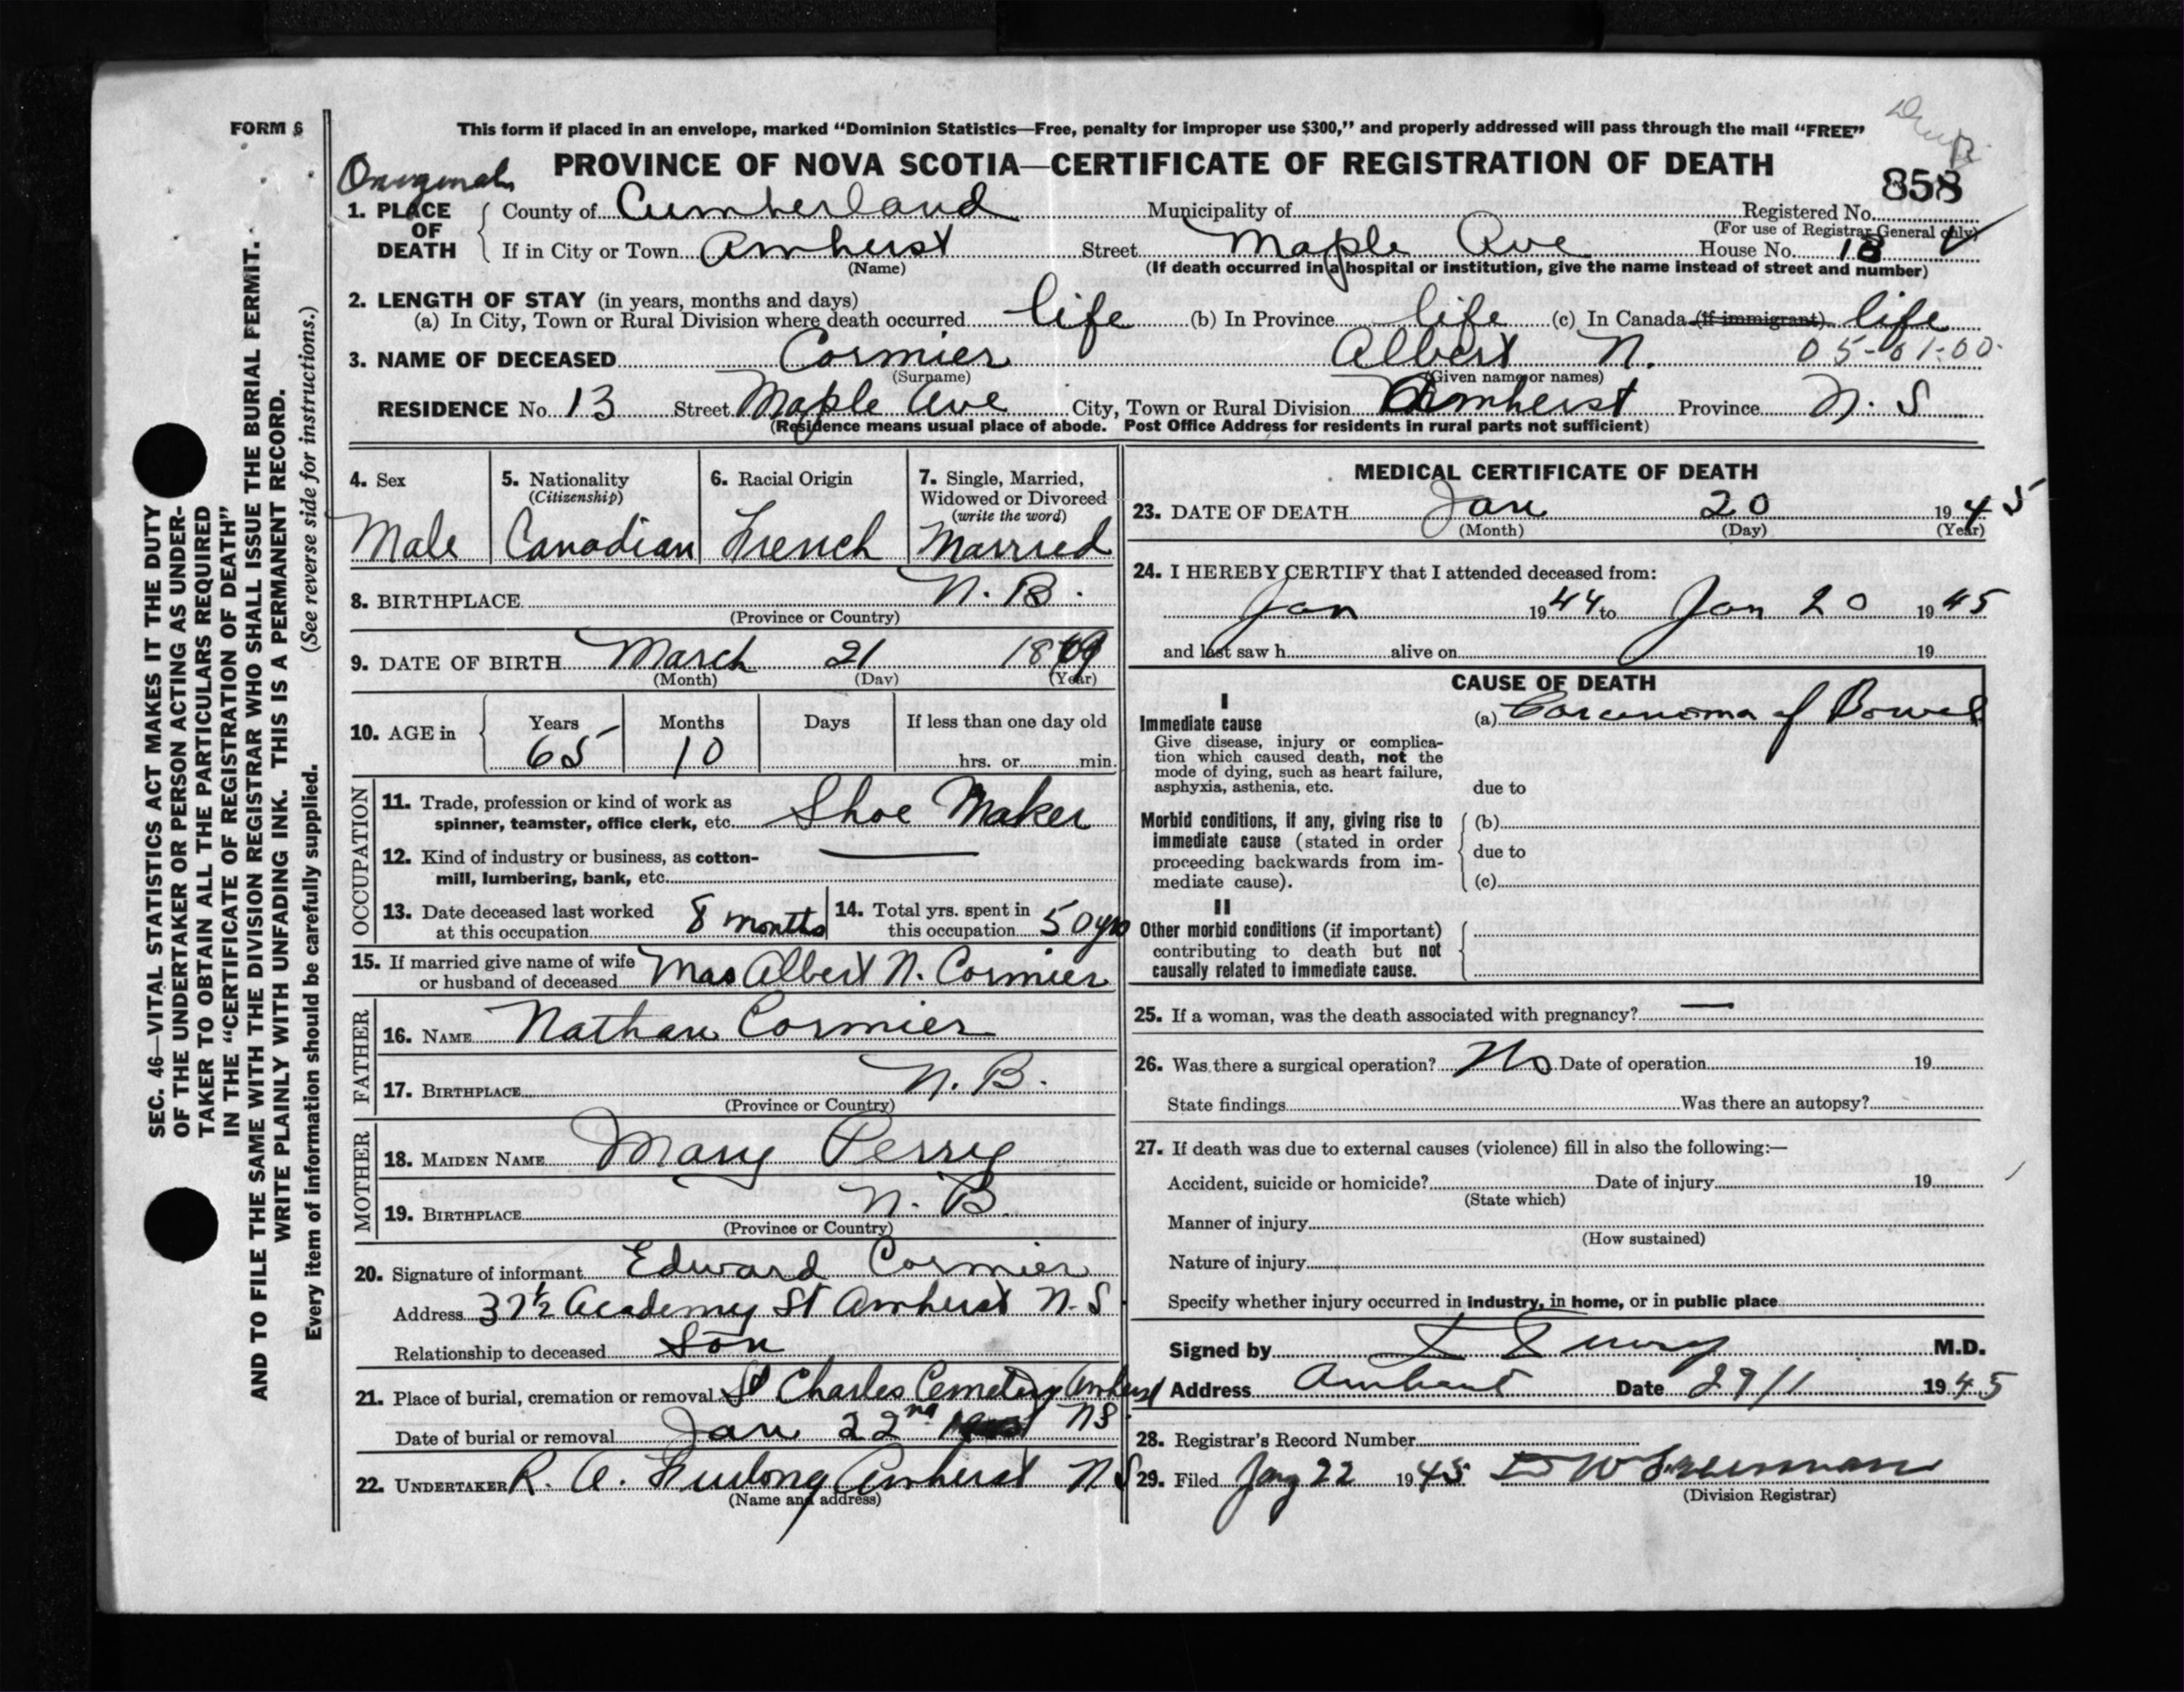 FORM 6
This form if placed in an envelope, marked “Dominion Statistics—Free, penalty for improper use $300,” and properly addressed will pass through the mail “FREE”
Original
PROVINCE OF NOVA SCOTIA—CERTIFICATE OF REGISTRATION OF DEATH
858
1. PLACE OF DEATH
County of Cumberland Municipality of Registered No.
(For use of Registrar General only)
If in City or Town Amherst Street Maple Ave House No. 13
(Name) (If death occurred in a hospital or institution, give the name instead of street and number)
2. LENGTH OF STAY (in years, months and days)
(a) In City, Town or Rural Division where death occurred life (b) In Province life (c) In Canada (if immigrant) life
3. NAME OF DECEASED Cormier Albert N. 05-01-00
(Surname) (Given name or names)
RESIDENCE No. 13 Street Maple Ave City, Town or Rural Division Amherst Province N. S
(Residence means usual place of abode. Post Office Address for residents in rural parts not sufficient)
4. Sex
Male
5. Nationality
(Citizenship)
Canadian
6. Racial Origin
French
7. Single, Married,
Widowed or Divorced
(write the word)
Married
8. BIRTHPLACE N. B.
(Province or Country)
9. DATE OF BIRTH March 21
(Month) (Day) (Year)
10. AGE in Years Months Days If less than one day old
65 10 hrs. or min.
OCCUPATION
11. Trade, profession or kind of work as
spinner, teamster, office clerk, etc. Shoe Maker
12. Kind of industry or business, as cotton-
mill, lumbering, bank, etc. —
13. Date deceased last worked
at this occupation 8 months
14. Total yrs. spent in
this occupation 50 yrs
15. If married give name of wife
or husband of deceased Mrs Albert N. Cormier
FATHER
16. NAME Nathan Cormier
17. BIRTHPLACE N. B.
(Province or Country)
MOTHER
18. MAIDEN NAME Mary Perry
19. BIRTHPLACE N. B.
(Province or Country)
20. Signature of informant Edward Cormier
Address 37½ Academy St Amherst N. S
Relationship to deceased Son
21. Place of burial, cremation or removal St Charles Cemetery Amherst
Date of burial or removal Jan 22nd NS
22. UNDERTAKER R. A. Furlong Amherst N S
(Name and address)
MEDICAL CERTIFICATE OF DEATH
23. DATE OF DEATH Jan 20 1945
(Month) (Day) (Year)
24. I HEREBY CERTIFY that I attended deceased from:
Jan 1944 to Jan 20 1945
and last saw h alive on 19
CAUSE OF DEATH
I
Immediate cause (a) Carcinoma of Bowel
Give disease, injury or complica-
tion which caused death, not the
mode of dying, such as heart failure,
asphyxia, asthenia, etc. due to
Morbid conditions, if any, giving rise to (b)
immediate cause (stated in order
proceeding backwards from im- due to
mediate cause). (c)
II
Other morbid conditions (if important)
contributing to death but not
causally related to immediate cause.
25. If a woman, was the death associated with pregnancy? —
26. Was there a surgical operation? No Date of operation 19
State findings Was there an autopsy?
27. If death was due to external causes (violence) fill in also the following:—
Accident, suicide or homicide? Date of injury 19
(State which)
Manner of injury
(How sustained)
Nature of injury
Specify whether injury occurred in industry, in home, or in public place
Signed by M.D.
Address Amherst Date 29/1 1945
28. Registrar's Record Number
29. Filed Jany 22 1945
(Division Registrar)
SEC. 46—VITAL STATISTICS ACT MAKES IT THE DUTY
OF THE UNDERTAKER OR PERSON ACTING AS UNDER-
TAKER TO OBTAIN ALL THE PARTICULARS REQUIRED
IN THE “CERTIFICATE OF REGISTRATION OF DEATH”
AND TO FILE THE SAME WITH THE DIVISION REGISTRAR WHO SHALL ISSUE THE BURIAL PERMIT.
WRITE PLAINLY WITH UNFADING INK. THIS IS A PERMANENT RECORD.
Every item of information should be carefully supplied. (See reverse side for instructions.)